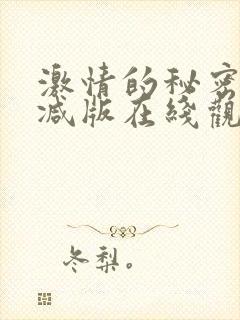 激情的秘密
减版在綫觀
冬梨。